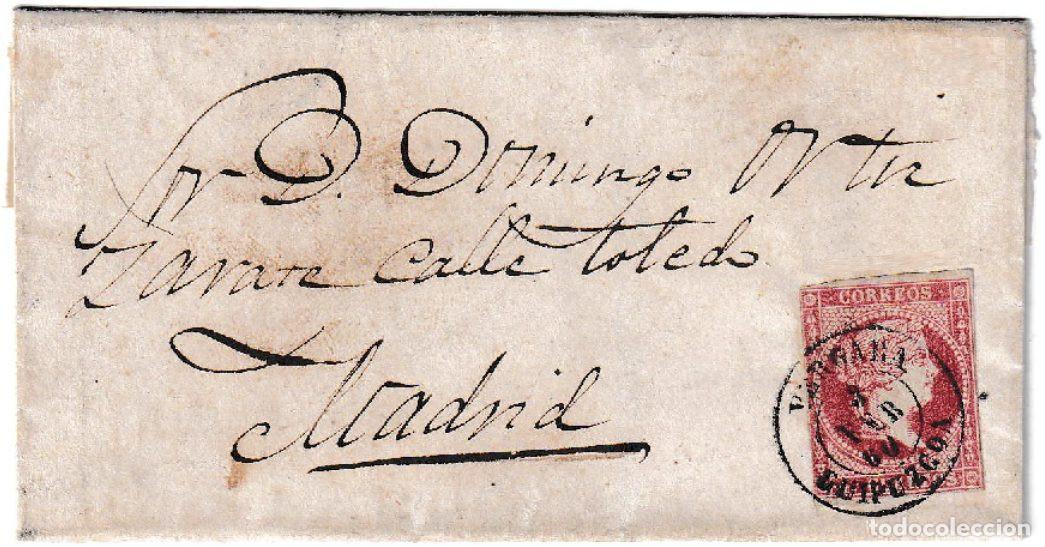 Sor D. Domingo Ortiz
Zarate calle toledo
Madrid
CORREOS
VERGARA
60
GUIPUZCOA
todocoleccion